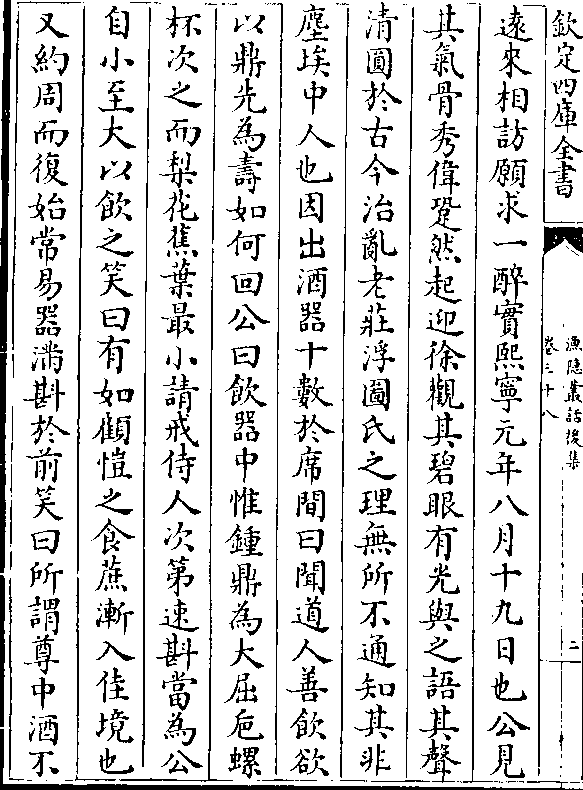 欽定四庫全書
漁隐叢話後集
卷三十八
二
逺來相訪願求一醉實熙寧元年八月十九日也公見
其氣骨秀偉跫然起迎徐觀其碧眼有光與之語其聲
清圎於古今治亂老莊浮圖氏之理無所不通知其非
塵埃中人也因出酒器十數於席間曰聞道人善飲欲
以鼎先為壽如何回公曰飲器中惟鍾鼎為大屈卮螺
杯次之而梨花蕉葉最小請戒侍人次第速斟當為公
自小至大以飲之笑曰有如顧愷之食蔗漸入佳境也
又約周而復始常易器滿斟於前笑曰所謂尊中酒不